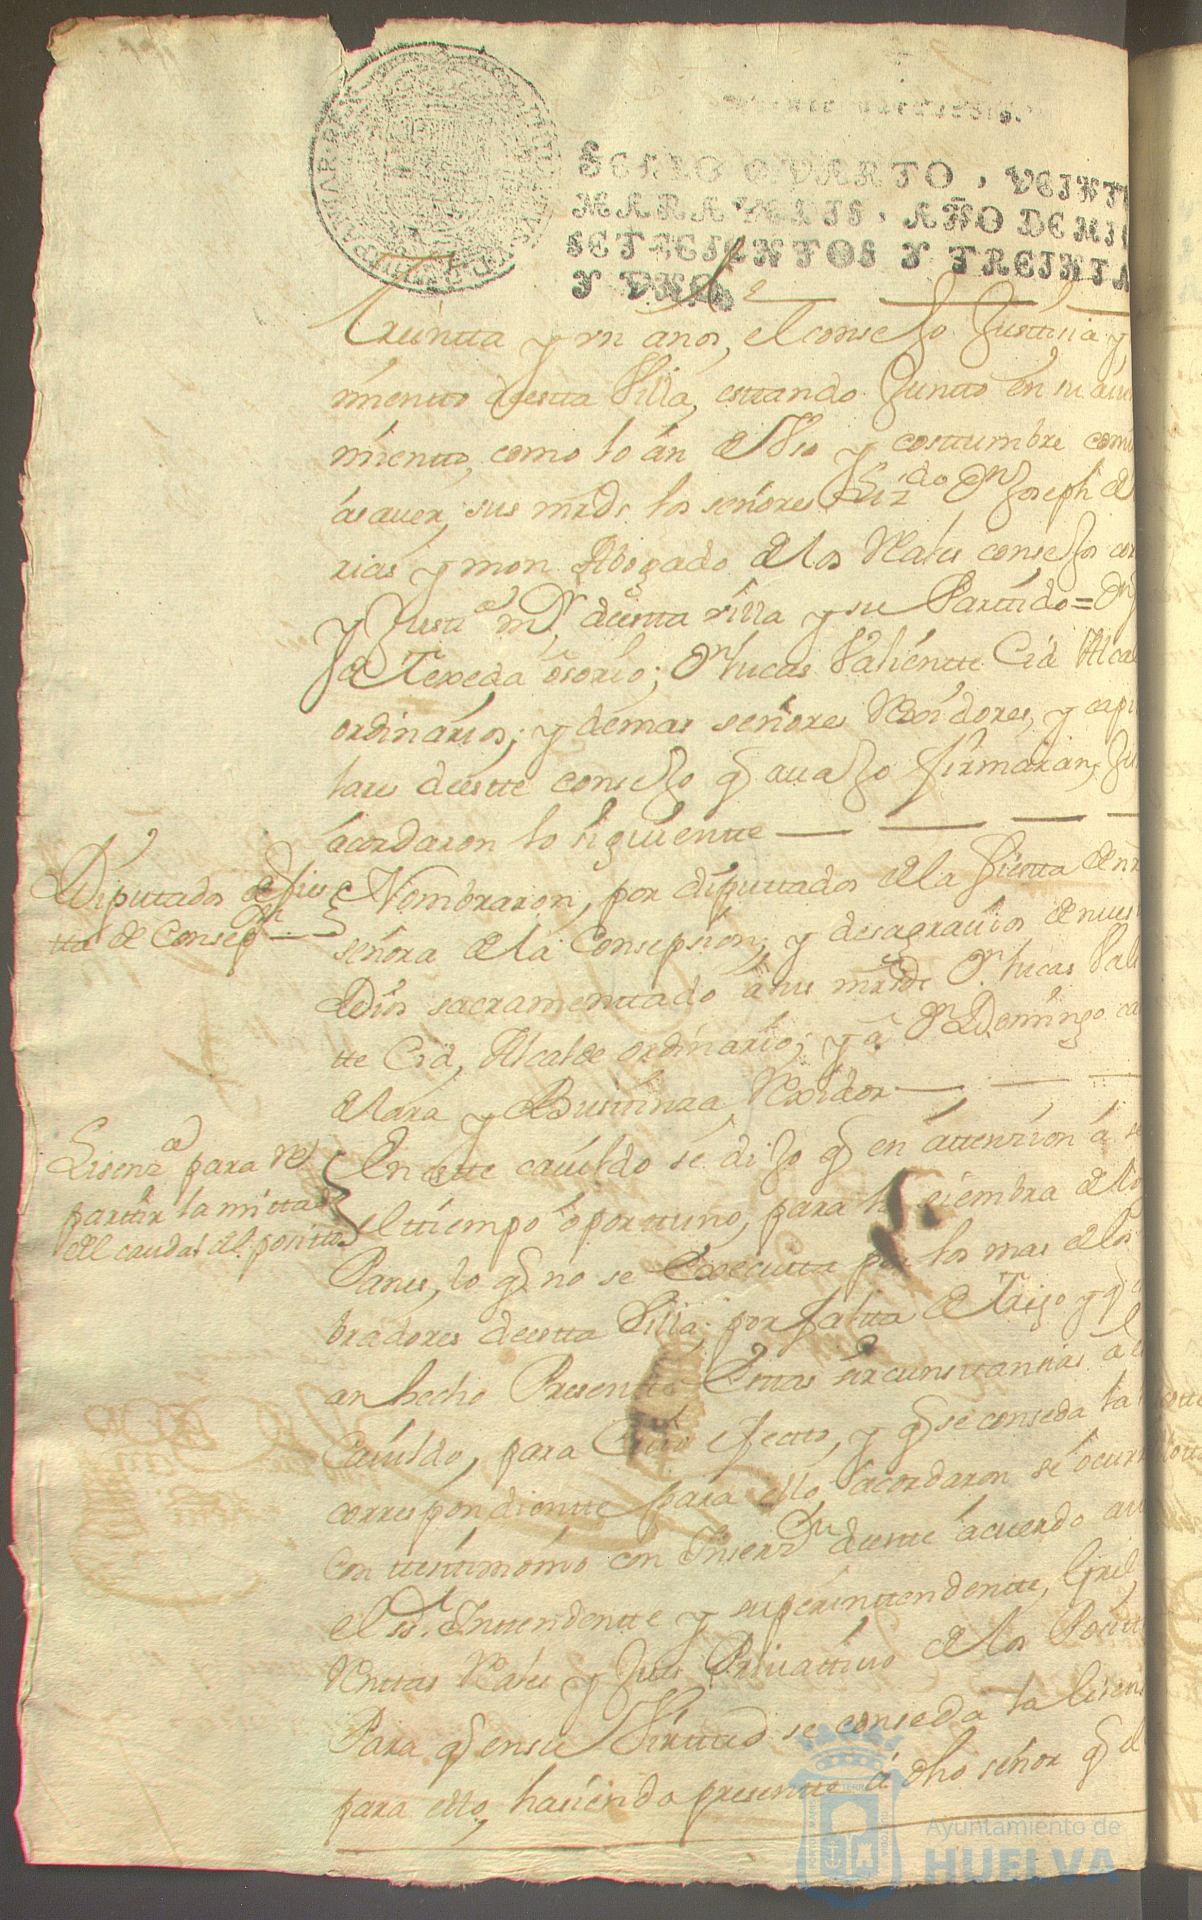 SELLO QVARTO, VEINT
MARAVEDIS, AÑO DE MI
SETECIENTOS Y TREINTA
Y VNO
treintta y un anos, el conse Jo Justtisia y
miento destta Villa, esttando Juntto en su aiun
mientto, como lo án de Vso y costtumbre com
ásauer, sus mrds. los señores Liz.do Dn. Joseph de
rias y mon Abogado de los Rales consejos cor
y Justt.a mr. destta villa y su Parttido = Dn
de Texeda ósorio; Dn. lucas Valientte Cid Alcal
ordinarios; y demas señores Rexidores, y capi
lares destte consejo q auajo firmarán, Jun
ácordaron lo siguientte
Diputtados de fies
tta de Consepn.
Nombraron, por diputtados de la fiestta de nr
señora de la Consepsion; y desagrauios de nues
Dios sacramenttado á sus mrzds Dn. lucas Vali
tte Cid, Alcalde ordinario; y á Dn. Domingo
de lara y Rexidor
Lisenz.a para re
parttir la mittad
del caudal del positto
En estte cauildo se dijo q en attenzion á se
el ttiempo oporttuno, para la siembra de los
Panes, lo q no se Executta por los mas de los
bradores destta Villa; por faltta de Trigo y q
an hecho Presentte Esttas sircunsttansias a el
Cauildo, para Estte efectto, y q se conseda la
correspondientte para ello, acordaron se ocurr
con ttesttimonio con Inserzn. destte ácuerdo
el sr. Inttendentte y superinttendentte, Grel,
Renttas Rales y Jues Priuattiuo de los Positt
Para q en su Virttud se conseda la lisens
para ello, hasiendo presentte á dho señor q el
Ayuntamiento de
HUELVA